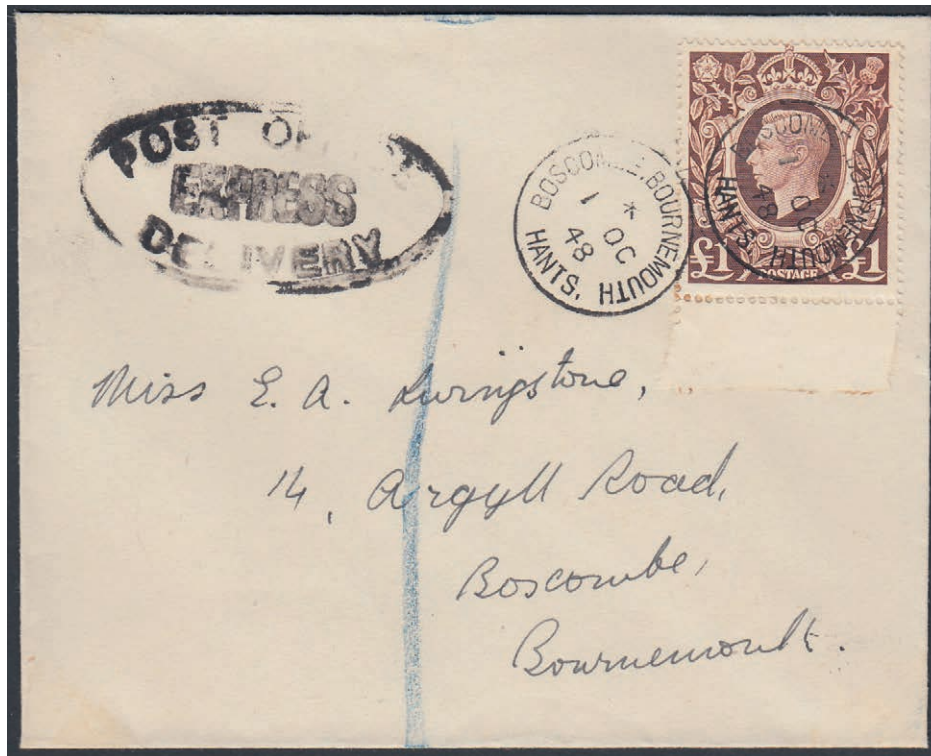 POST OFFICE
EXPRESS
DELIVERY
BOSCOMBE. BOURNEMOUTH
*
1 OC
48
HANTS.
BOSCOMBE. BOURNEMOUTH
1 OC
48
HANTS.
£1 POSTAGE £1
Miss E. A. Livingstone,
14, Argyll Road,
Boscombe,
Bournemouth.